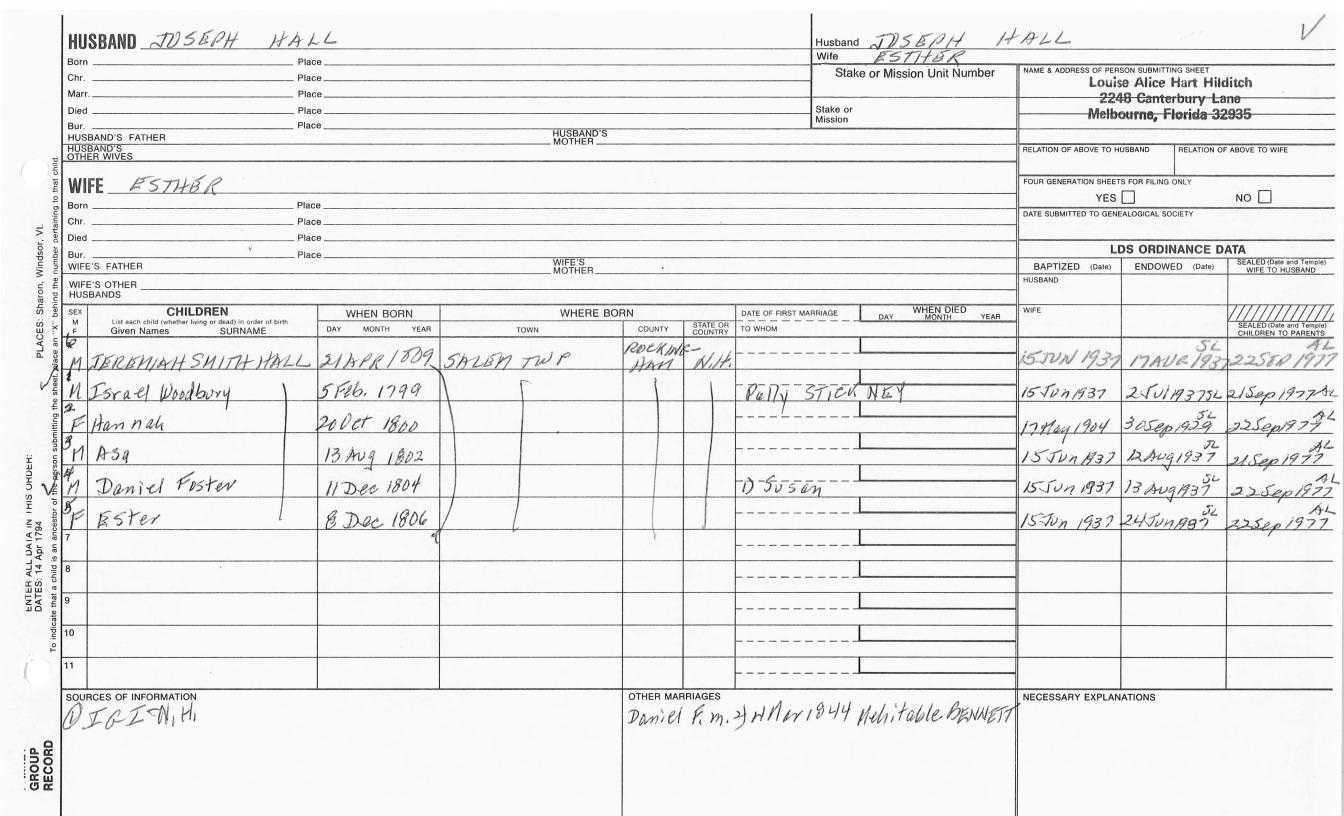 HUSBAND JOSEPH HALL
Born Place
Chr. Place
Marr. Place
Died Place
Bur. Place
HUSBAND'S FATHER HUSBAND'S MOTHER
HUSBAND'S OTHER WIVES
Husband JOSEPH HALL
Wife ESTHER
Stake or Mission Unit Number
Stake or Mission
NAME & ADDRESS OF PERSON SUBMITTING SHEET
Louise Alice Hart Hilditch
2248 Canterbury Lane
Melbourne, Florida 32935
RELATION OF ABOVE TO HUSBAND RELATION OF ABOVE TO WIFE
FOUR GENERATION SHEETS FOR FILING ONLY
YES NO
DATE SUBMITTED TO GENEALOGICAL SOCIETY
WIFE ESTHER
Born Place
Chr. Place
Died Place
Bur. Place
WIFE'S FATHER WIFE'S MOTHER
WIFE'S OTHER HUSBANDS
LDS ORDINANCE DATA
BAPTIZED (Date) ENDOWED (Date) SEALED (Date and Temple) WIFE TO HUSBAND
HUSBAND
WIFE
SEALED (Date and Temple) CHILDREN TO PARENTS
SEX M F CHILDREN WHEN BORN WHERE BORN DATE OF FIRST MARRIAGE WHEN DIED
List each child (whether living or dead) in order of birth
Given Names SURNAME DAY MONTH YEAR TOWN COUNTY STATE OR COUNTRY TO WHOM DAY MONTH YEAR
6 M JEREMIAH SMITH HALL 21 APR 1809 SALEM TWP ROCKINGHAM N.H. 15 JUN 1937 17 AUG 1937 SL 22 SEP 1977 AL
1 M Israel Woodbury 5 Feb. 1799 Polly STICKNEY 15 Jun 1937 2 Jul 1937 SL 21 Sep 1977 AL
2 F Hannah 20 Oct 1800 17 May 1904 30 Sep 1929 SL 22 Sep 1977 AL
3 M Asa 13 Aug 1802 15 Jun 1937 12 Aug 1937 SL 21 Sep 1977 AL
4 M Daniel Foster 11 Dec 1804 1) Susan 15 Jun 1937 13 Aug 1937 SL 22 Sep 1977 AL
5 F Ester 8 Dec 1806 15 Jun 1937 24 Jun 1937 SL 22 Sep 1977 AL
7
8
9
10
11
SOURCES OF INFORMATION
① IGI N.H.
OTHER MARRIAGES
Daniel F. m. 2) Mar 1844 Mehitable BENNETT
NECESSARY EXPLANATIONS
ENTER ALL DATA IN THIS ORDER:
DATES: 14 Apr 1794 PLACES: Sharon, Windsor, Vt.
To indicate that a child is an ancestor of the person submitting the sheet, place an "X" behind the number pertaining to that child.
GROUP
RECORD